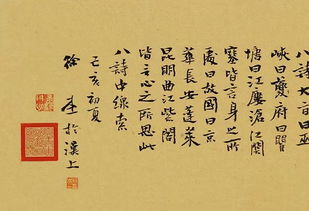 八詩大旨曰巫
峽曰夔府曰瞿
塘曰江廔滄江関
塞皆言身之所
處曰故國曰京
華長安蓬萊
昆明曲江紫閣
皆言心之所思此
八詩中線索
己亥初夏
徐 於漢上